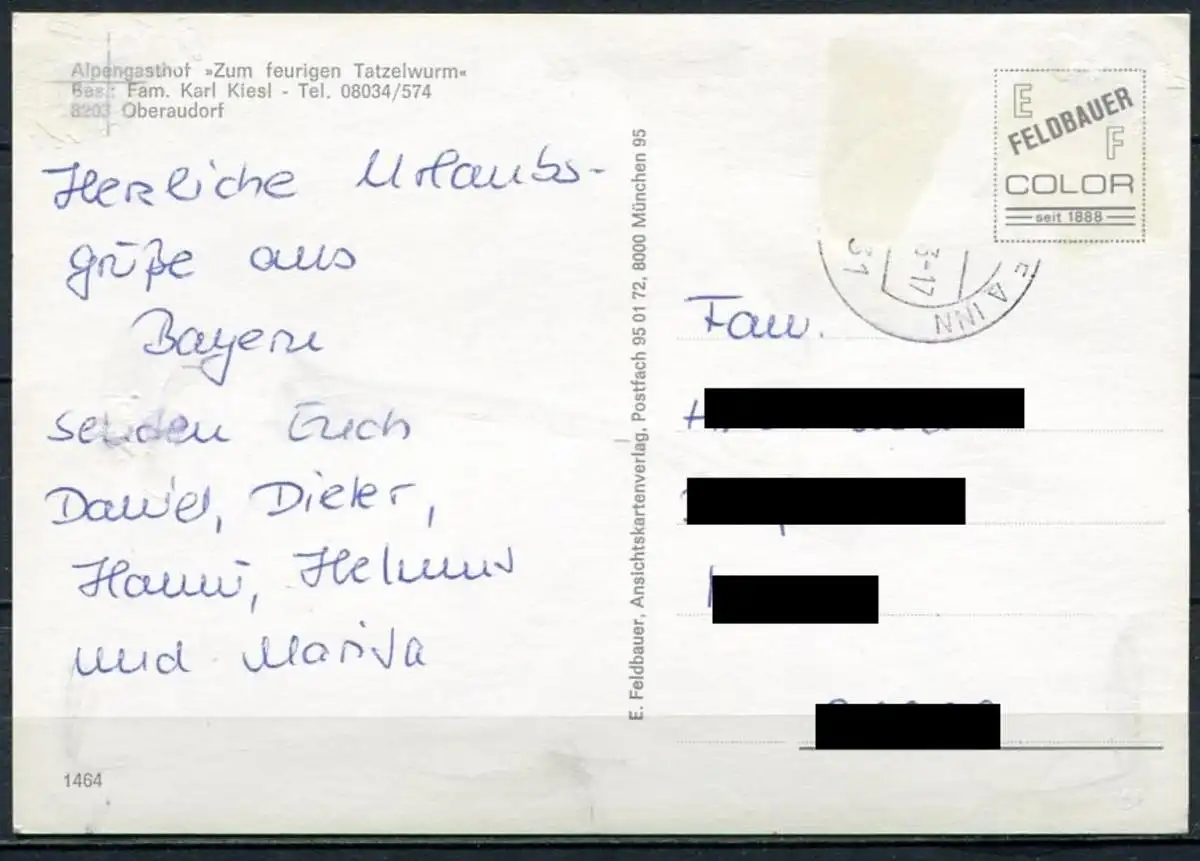 Alpengasthof »Zum feurigen Tatzelwurm«
Bes.: Fam. Karl Kiesl - Tel. 08034/574
8203 Oberaudorf
Herzliche Urlaubs-
grüße aus
Bayern
senden Euch
Daniel, Dieter,
Hanni, Helmut
und Marita
1464
E. Feldbauer, Ansichtskartenverlag, Postfach 95 01 72, 8000 München 95
E
FELDBAUER
F
COLOR
seit 1888
31
3-17
A INN
Fam.